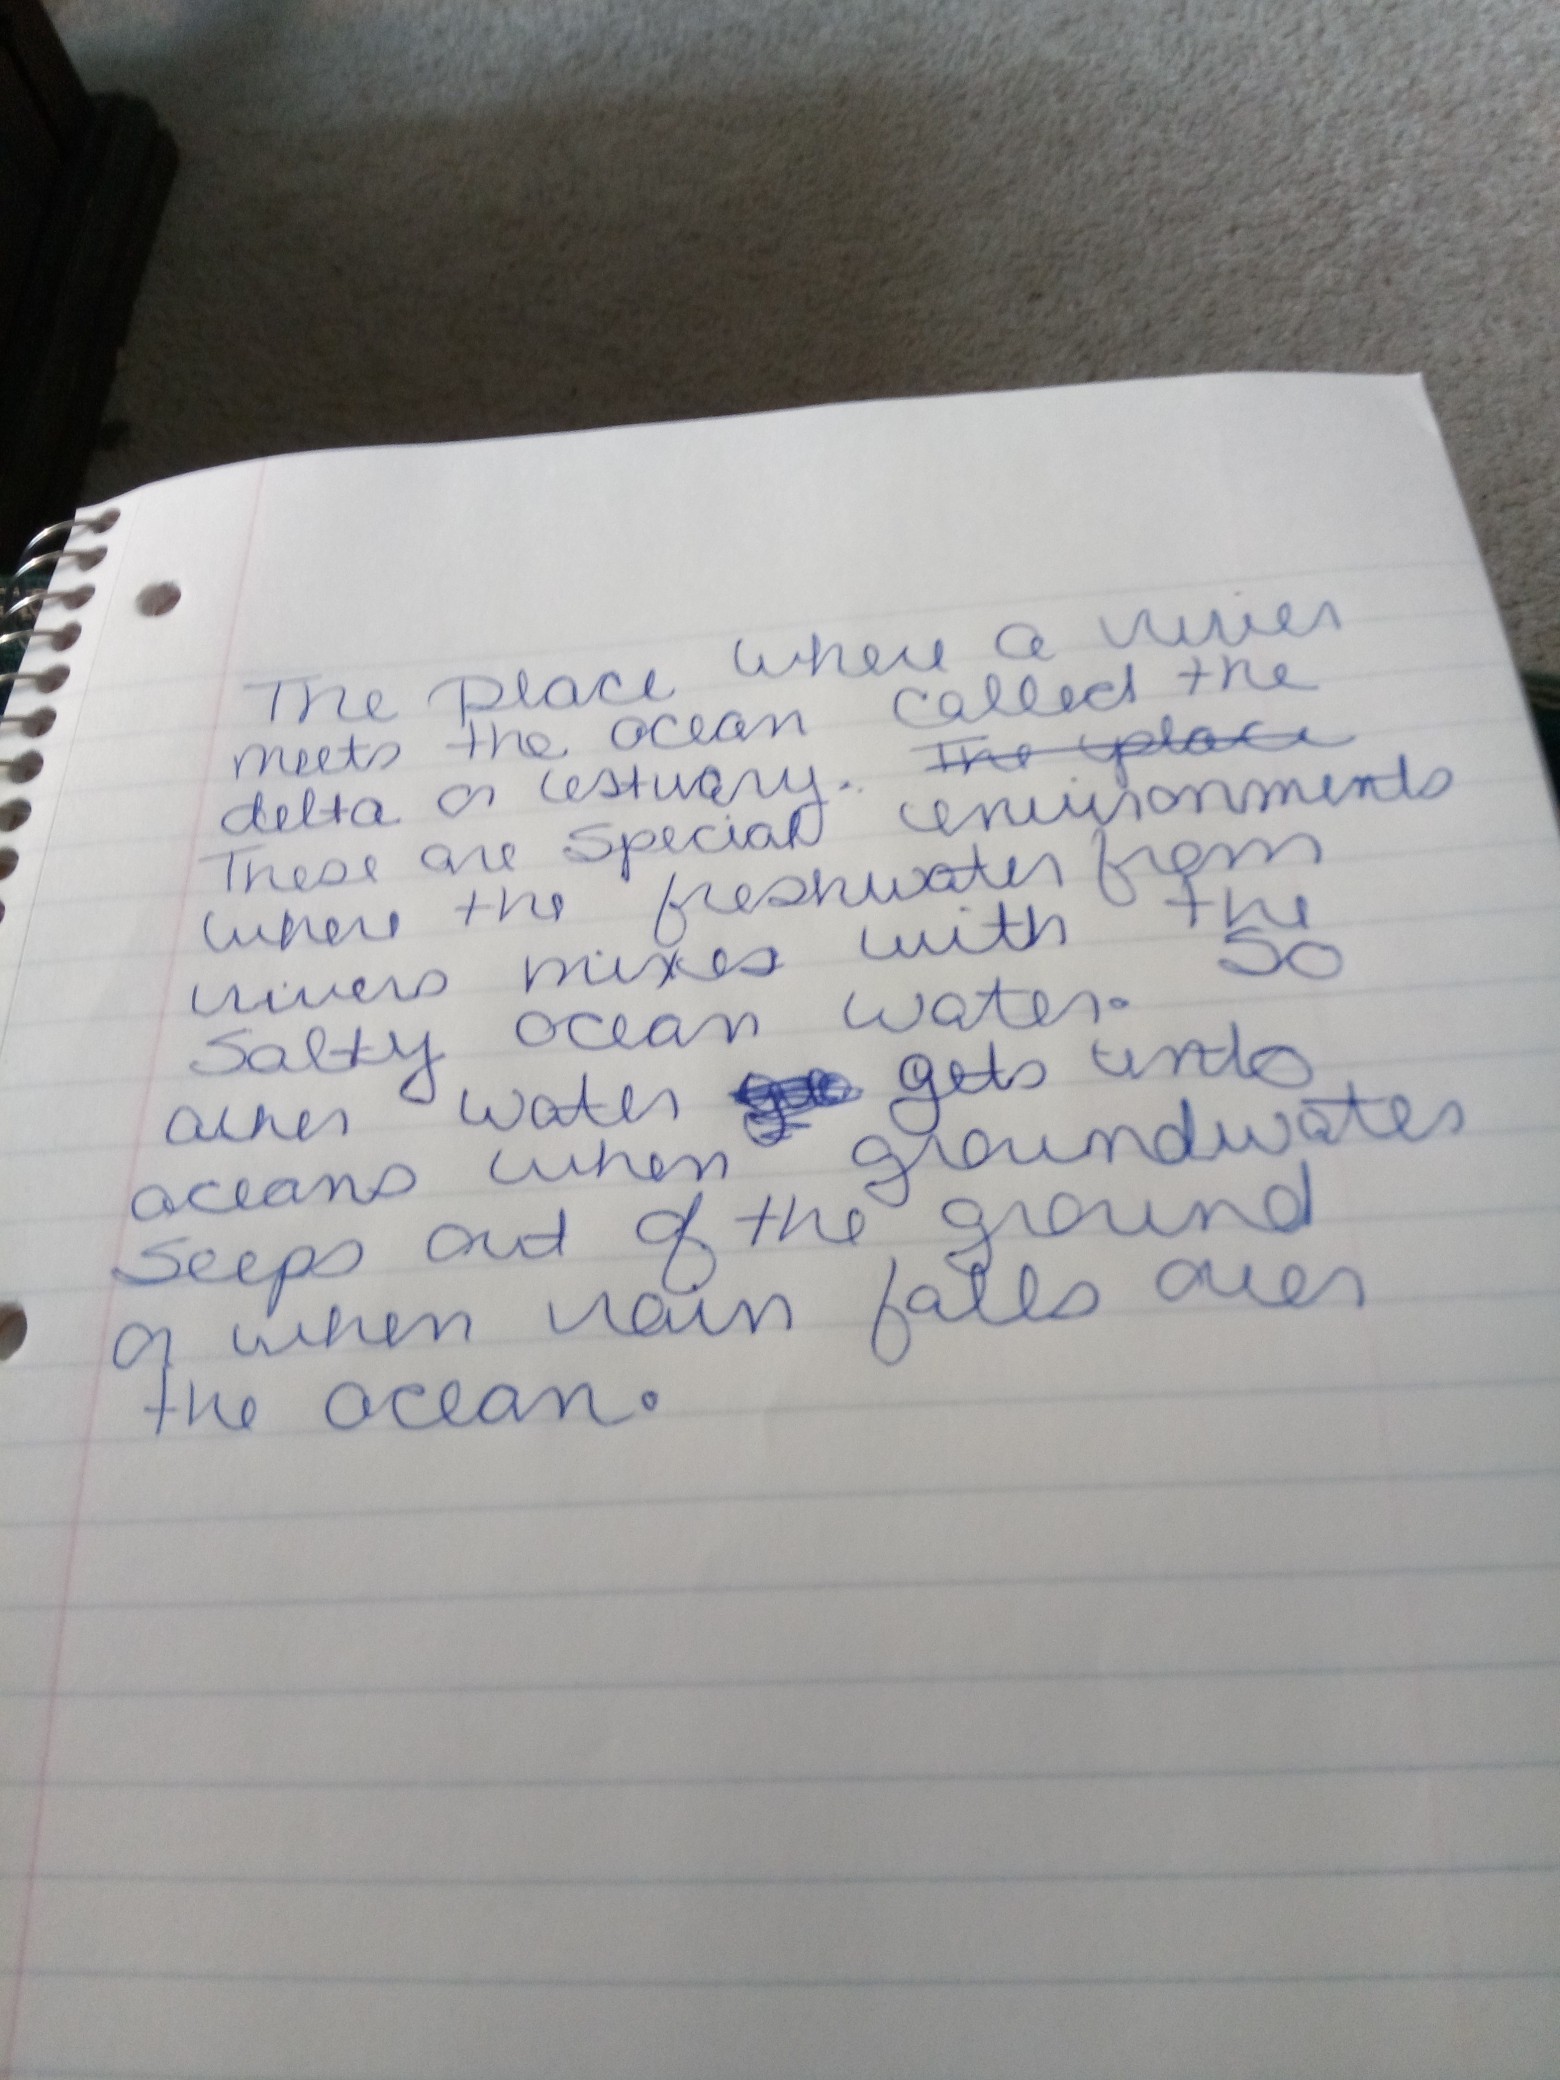 The place where a river
meets the ocean called the
delta or estuary. The place
These are special environments
where the freshwater from
rivers mixes with the
salty ocean water. So
other water gets into
oceans when groundwater
seeps out of the ground
or when rain falls over
the ocean.